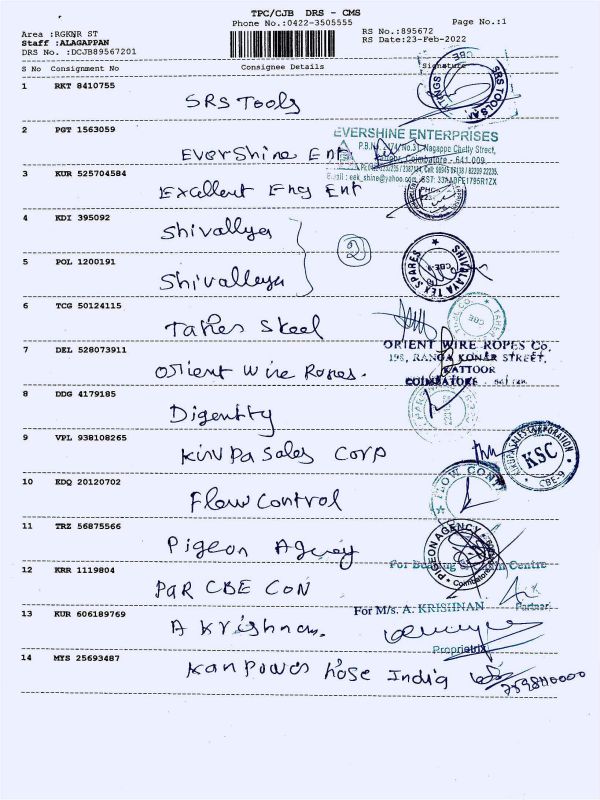 TPC/CJB DRS - CMS
Phone No.:0422-3505555
Page No.:1
Area :RGKNR ST
Staff :ALAGAPPAN
DRS No. :DCJB89567201
RS No.:895672
RS Date:23-Feb-2022
S No Consignment No Consignee Details Signature
1 RKT 8410755 SRS Tools
SRS TOOLS
2 PGT 1563059 EverShine Ent
EVERSHINE ENTERPRISES
Nagappa Chetty Street,
Coimbatore - 641 009
3 KUR 525704584 Excellent Eng Ent
4 KDI 395092 Shivallya
2
5 POL 1200191 Shivalleya
SHIVALAYA TEX SPARES
CBE-9
6 TCG 50124115 Taher Steel
CBE
7 DEL 528073911 Orient Wire Ropes.
ORIENT WIRE ROPES Co.
198, RANGA KONAR STREET,
KATTOOR
COIMBATORE
8 DDG 4179185 Digentty
9 VPL 938108265 Kirupa Sales Corp
KIRUPA SALES CORPORATION
KSC
CBE-9
10 EDQ 20120702 Flow Control
FLOW CONT
11 TRZ 56875566 Pigeon Agency
PIGEON AGENCY
Coimbatore
12 KRR 1119804 PaR CBE CON
Centre
Partner
13 KUR 606189769 A Krishnan.
For M/s. A. KRISHNAN
Proprietrix
14 MYS 25693487 Kanpower hose India